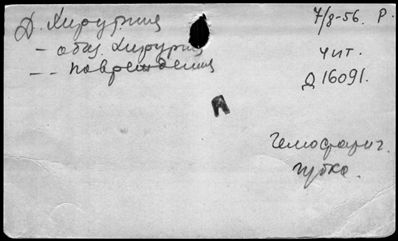 Д. Хирургия
- общ. Хирургия
- - повреждения
7/8-56. Р.
Чит.
Д 16091.
Д
Гемостатич.
губка.